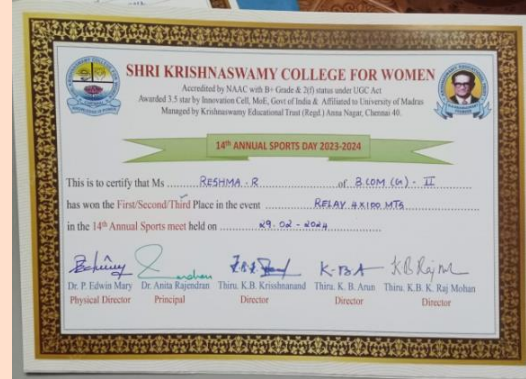 SHRI KRISHNASWAMY COLLEGE FOR WOMEN
Accredited by NAAC with B+ Grade & 2(f) status under UGC Act
Awarded 3.5 star by Innovation Cell, MoE, Govt of India & Affiliated to University of Madras
Managed by Krishnaswamy Educational Trust (Regd.) Anna Nagar, Chennai 40.
14th ANNUAL SPORTS DAY 2023-2024
This is to certify that Ms RESHMA - R of B.COM (G) - II
has won the First/Second/Third Place in the event RELAY 4X100 MTS
in the 14th Annual Sports meet held on 29.02-2024
Dr. P. Edwin Mary Dr. Anita Rajendran Thiru. K.B. Krisshnanand Thiru. K. B. Arun Thiru. K.B. K. Raj Mohan
Physical Director Principal Director Director Director